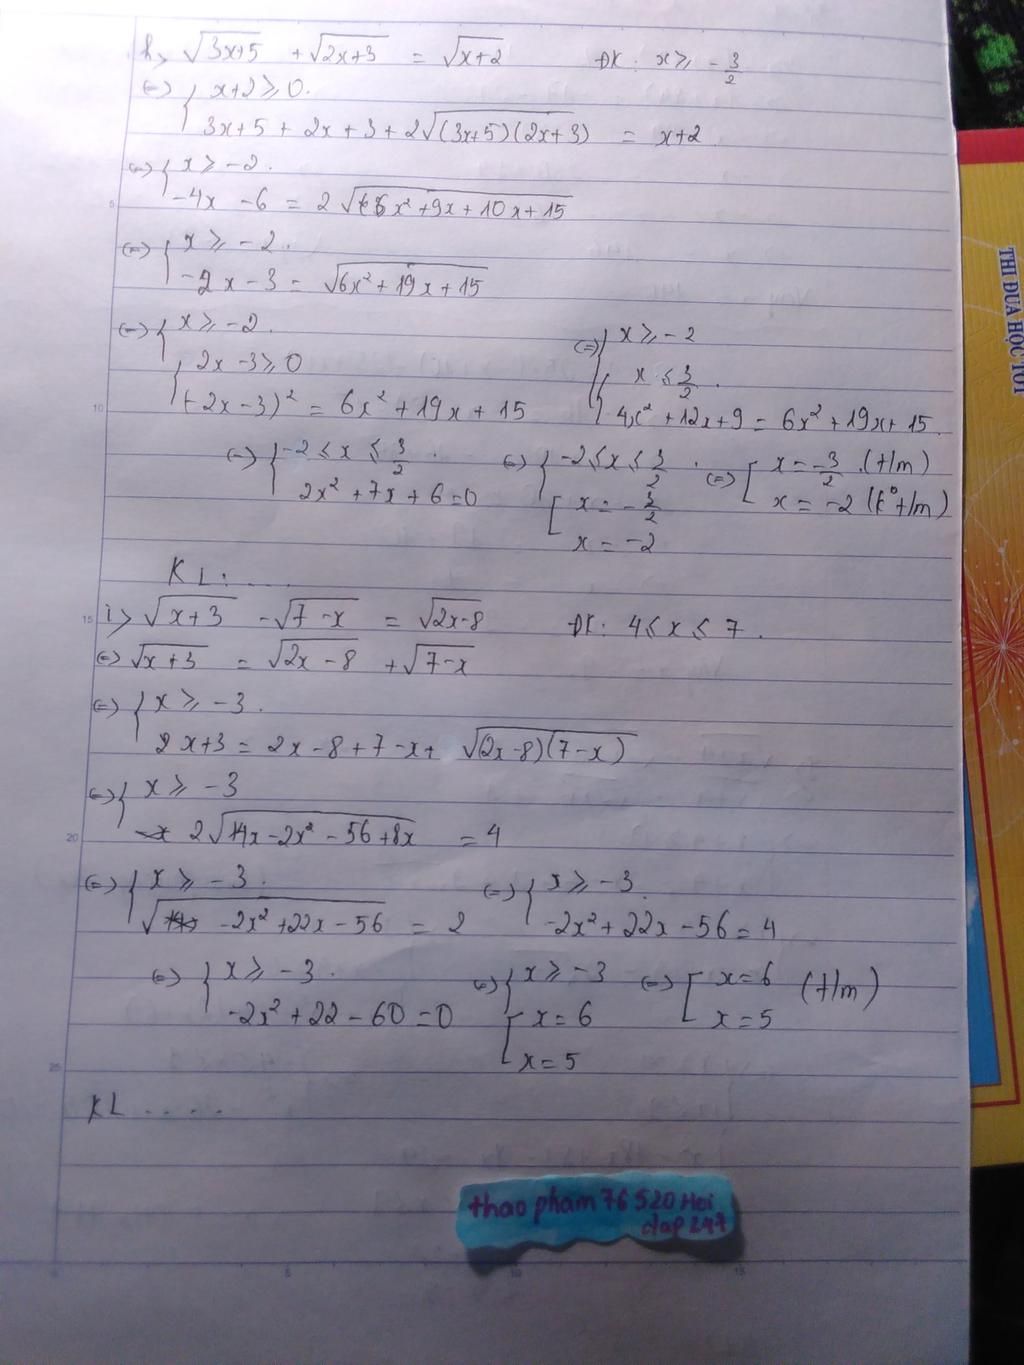 h, √(3x+5) + √(2x+3) = √(x+2) ĐK: x ≥ -3/2
(=) { x+2 ≥ 0.
3x+5 + 2x+3 + 2√((3x+5)(2x+3)) = x+2
(=) { x ≥ -2.
-4x - 6 = 2√(6x² + 9x + 10x + 15)
(=) { x ≥ -2.
-2x - 3 = √(6x² + 19x + 15)
(=) { x ≥ -2.
{ 2x - 3 ≥ 0
(-2x-3)² = 6x² + 19x + 15
(=) { x ≥ -2
{ x ≤ 3/2.
4x² + 12x + 9 = 6x² + 19x + 15.
(=) { -2 ≤ x ≤ 3/2.
2x² + 7x + 6 = 0
(=) { -2 ≤ x ≤ 3/2.
[ x = -3/2
x = -2
(=) [ x = -3/2 .(t/m)
x = -2 (k° t/m)
KL: ....
i> √(x+3) - √(7-x) = √(2x-8) ĐK: 4 ≤ x ≤ 7.
(=) √(x+3) = √(2x-8) + √(7-x)
(=) { x ≥ -3.
2x+3 = 2x-8+7-x+ √((2x-8)(7-x))
(=) { x ≥ -3
2√(14x - 2x² - 56 + 8x) = 4
(=) { x ≥ -3.
√(-2x² + 22x - 56) = 2
(=) { x ≥ -3.
-2x² + 22x - 56 = 4
(=) { x ≥ -3.
-2x² + 22 - 60 = 0
(=) { x ≥ -3
[ x = 6
x = 5
(=) [ x = 6
x = 5
(t/m)
KL ....
thao pham 76 520 Hoi
dap 247
THI ĐUA HỌC TỐT
5
10
15
20
25
5
10
15